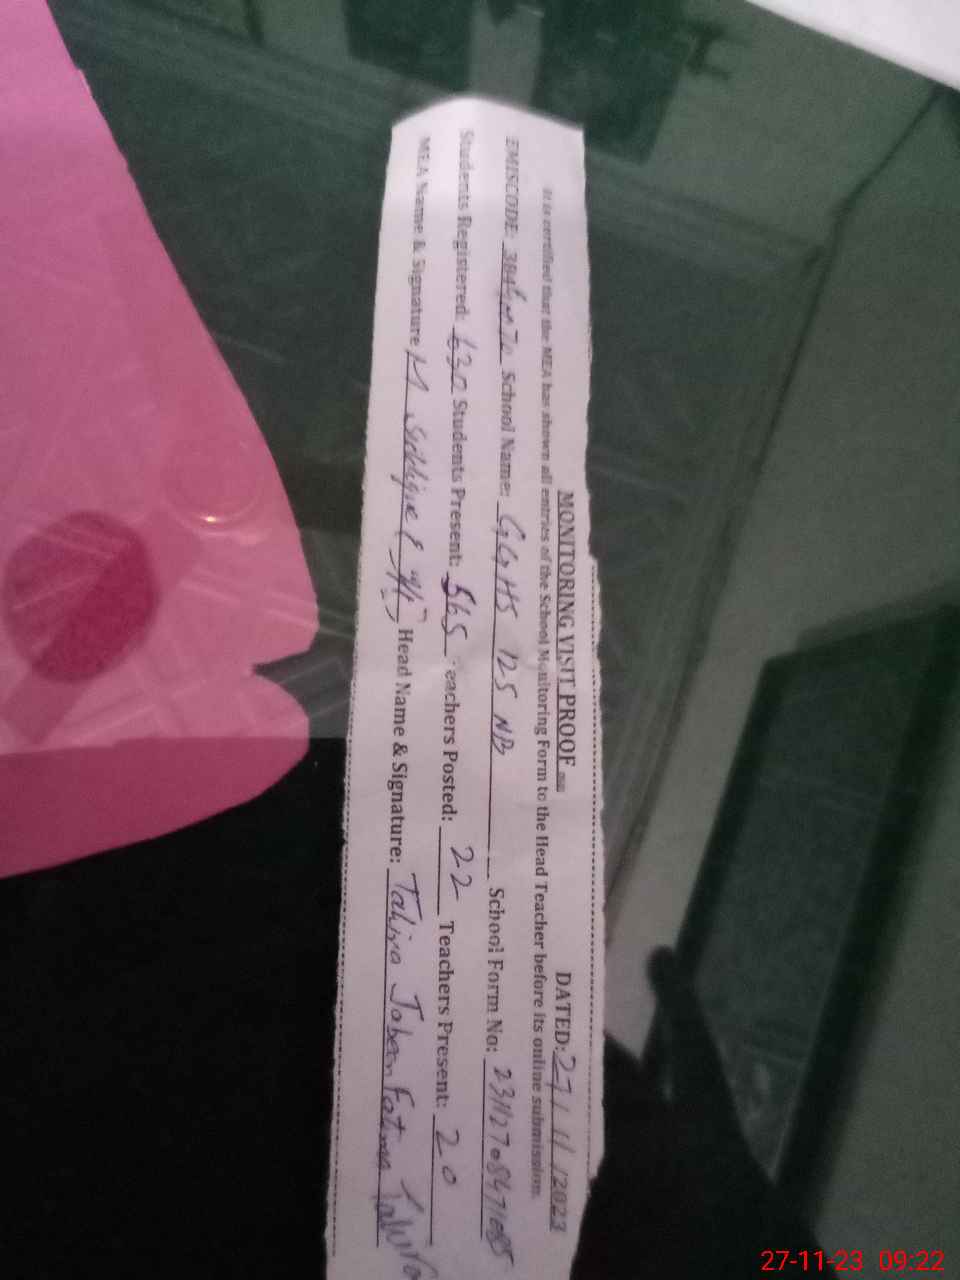 MONITORING VISIT PROOF DATED: 27/11/2023
It is certified that the MEA has shown all entries of the School Monitoring Form to the Head Teacher before its online submission.
EMISCODE: School Name: GGHS 125 NB School Form No:
Students Registered: 630 Students Present: 565 Teachers Posted: 22 Teachers Present: 20
MEA Name & Signature M Siddique Head Name & Signature: Tahira Fatima
27-11-23 09:22